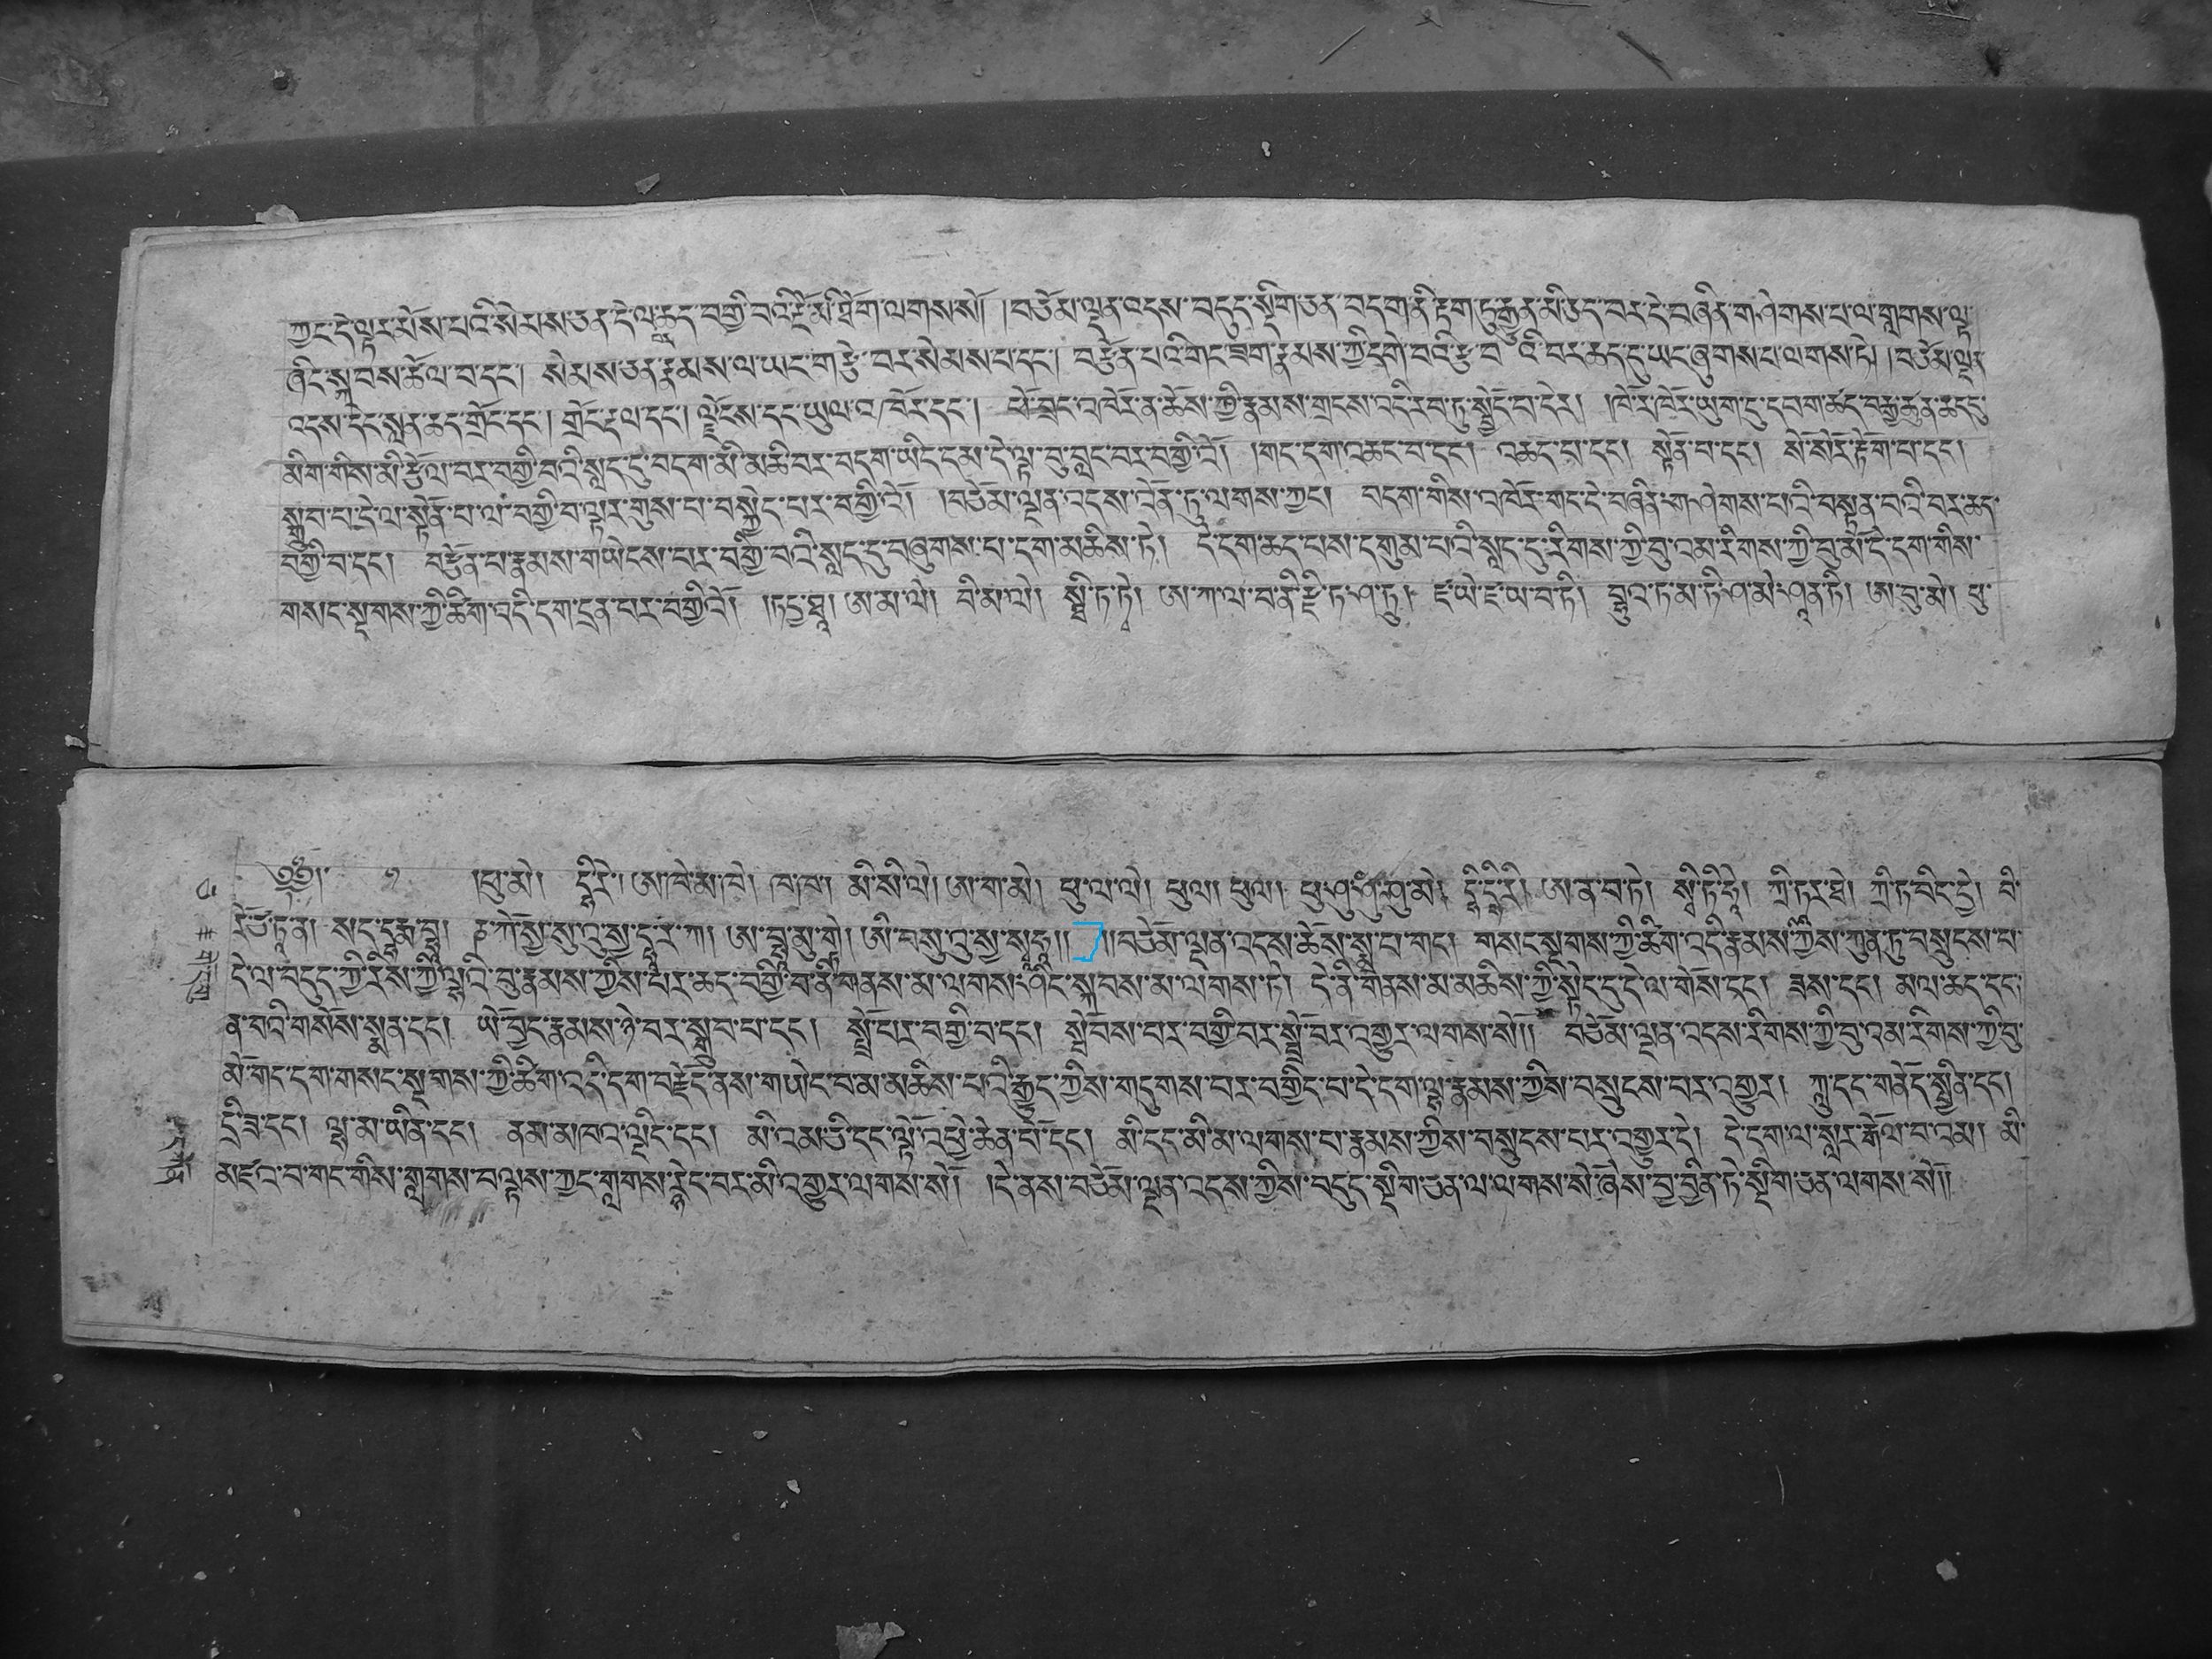 ཀྱང་དེ་ལྟར་མོས་པའི་སེམས་ཅན་དེ་ལ་ཆུད་བགྱི་བའི་རྡོ་མོ་ཐོག་ལགས་སོ། །བཅོམ་ལྡན་འདས་བདུད་སྡིག་ཅན་བདག་ནི་རྟག་ཏུ་རྒྱུན་མི་འཆད་པར་དེ་བཞིན་གཤེགས་པ་ལ་གླགས་ལྟ་
ཞིང་སྐབས་ཚོལ་བ་དང་། སེམས་ཅན་རྣམས་ལ་ཡང་གཙེ་བར་སེམས་པ་དང་། བརྩོན་པའི་གང་ཟག་རྣམས་ཀྱི་དགེ་བའི་རྩ་བའི་བར་ཆད་དུ་ཡང་ཞུགས་པ་ལགས་ཏེ། །བཅོམ་ལྡན་
འདས་དེང་སླན་ཆད་གྲོང་དང་། གྲོང་རྡལ་དང་། ལྗོངས་དང་ཡུལ་འཁོར་དང་། ཕོ་བྲང་འཁོར་ན་ཆོས་ཀྱི་རྣམས་གྲངས་འདི་རབ་ཏུ་སྤྱོད་པ་དེར། །ཁོ་ར་ཁོར་ཡུག་ཏུ་དཔག་ཚད་བརྒྱ་ཚུན་ཆད་དུ་
མིག་གིས་མི་རྩོལ་བར་བགྱི་བའི་སླད་དུ་བདག་མི་མཆི་བར་བདག་ཡི་དམ་དེ་ལྟ་བུ་བླང་བར་བགྱིའོ། །གང་དག་འཆང་བ་དང་། འཆད་པ་དང་། སྟོན་པ་དང་། སོ་སོར་རྟོག་པ་དང་།
སྒྲུབ་པ་དེ་ལ་སྟོན་པ་ལ་བགྱི་བ་ལྟར་གུས་པ་བསྐྱེད་པར་བགྱིའོ། །བཅོམ་ལྡན་འདས་འོན་ཏུ་ལགས་ཀྱང་། བདག་གིས་འཁོར་གང་དེ་བཞིན་གཤེགས་པའི་བསྟན་པའི་བར་ཆད་
བགྱི་བ་དང་། བརྩོན་པ་རྣམས་གཡེངས་པར་བགྱི་བའི་སླད་དུ་བཞུགས་པ་དག་མཆིས་ཏེ། དེ་དག་ཆད་པས་དགུམ་པའི་སླད་དུ་རིགས་ཀྱི་བུ་འམ་རིགས་ཀྱི་བུ་མོ་དེ་དག་གིས་
གསང་སྔགས་ཀྱི་ཚིག་འདི་དག་དྲན་པར་བགྱིའོ། །ཏདྱ་ཐཱ། ཨ་མ་ལེ། བི་མ་ལེ། ཨ་ཀ་ལ་བ་ནི་རྫི་ཏ་ཤ་ཏྲུ། ཛ་ཡེ་ཛ་ཡ་བ་ཏི། ཨ་བུ་མེ། ཕུ་
༄༅། །ཕུ་མེ། དྷི་རེ། ཨ་ཁེ་མ་ཁེ། ཁ་ཁ། མི་སི་ལེ། ཨ་ག་མེ། ཕུ་ལ་ལེ། ཕུ་ལ། ཕུ་ལ། དྷི་དྷི་རི། ཨ་ན་བ་ཏེ། ཀྲི་ཏ་ར་ཐེ། བི་
ཨ་བསུ་བུ་སྱ་སྭཱ་ཧཱ།། །།བཅོམ་ལྡན་འདས་ཆོས་སྨྲ་བ་གང་། གསང་སྔགས་ཀྱི་ཚིག་འདི་རྣམས་ཀྱིས་ཀུན་ཏུ་བསྲུངས་པ་
དེ་ལ་བདུད་ཀྱི་རིས་ཀྱི་ལྷའི་བུ་རྣམས་ཀྱིས་བར་ཆད་བགྱི་བ་ནི་གནས་མ་ལགས་ཤིང་སྐབས་མ་ལགས་ཏེ། དེ་ནི་གནས་མ་མཆིས་ཀྱི་སྟེང་དུ་དེ་ལ་གོས་དང་། ཟས་དང་། མལ་ཆད་དང་
ན་བའི་གསོས་སྨན་དང་། ཡོ་བྱད་རྣམས་ཉེ་བར་སྒྲུབ་པ་དང་། སྤྲོ་བར་བགྱི་བ་དང་། སྤོབས་པར་བགྱི་བར་སྤྲོ་བར་འགྱུར་ལགས་སོ།། བཅོམ་ལྡན་འདས་རིགས་ཀྱི་བུ་འམ་རིགས་ཀྱི་བུ་
མོ་གང་དག་གསང་སྔགས་ཀྱི་ཚིག་འདི་དག་བརྗོད་ནས་གཡེང་བ་མ་མཆིས་པའི་རྒྱུད་ཀྱིས་གདུགས་པར་བགྱིད་པ་དེ་དག་ལྷ་རྣམས་ཀྱིས་བསྲུངས་པར་འགྱུར། ཀླུ་དང་གནོད་སྦྱིན་དང་།
དྲི་ཟ་དང་། ལྷ་མ་ཡིན་དང་། ནམ་མཁའ་ལྡིང་དང་། མི་འམ་ཅི་དང་ལྟོ་འཕྱེ་ཆེན་པོ་དང་། མི་དང་མི་མ་ལགས་པ་རྣམས་ཀྱིས་བསྲུངས་པར་འགྱུར་དེ། དེ་དག་ལ་སླར་རྒོལ་བ་འམ། མི་
མཛའ་བ་གང་གིས་གླགས་བལྟས་ཀྱང་གླགས་རྙེད་པར་མི་འགྱུར་ལགས་སོ། །དེ་ནས་བཅོམ་ལྡན་འདས་ཀྱིས་བདུད་སྡིག་ཅན་ལ་ལགས་སོ་ཞེས་བྱ་བྱིན་ཏེ་སྡིག་ཅན་ལགས་སོ།།